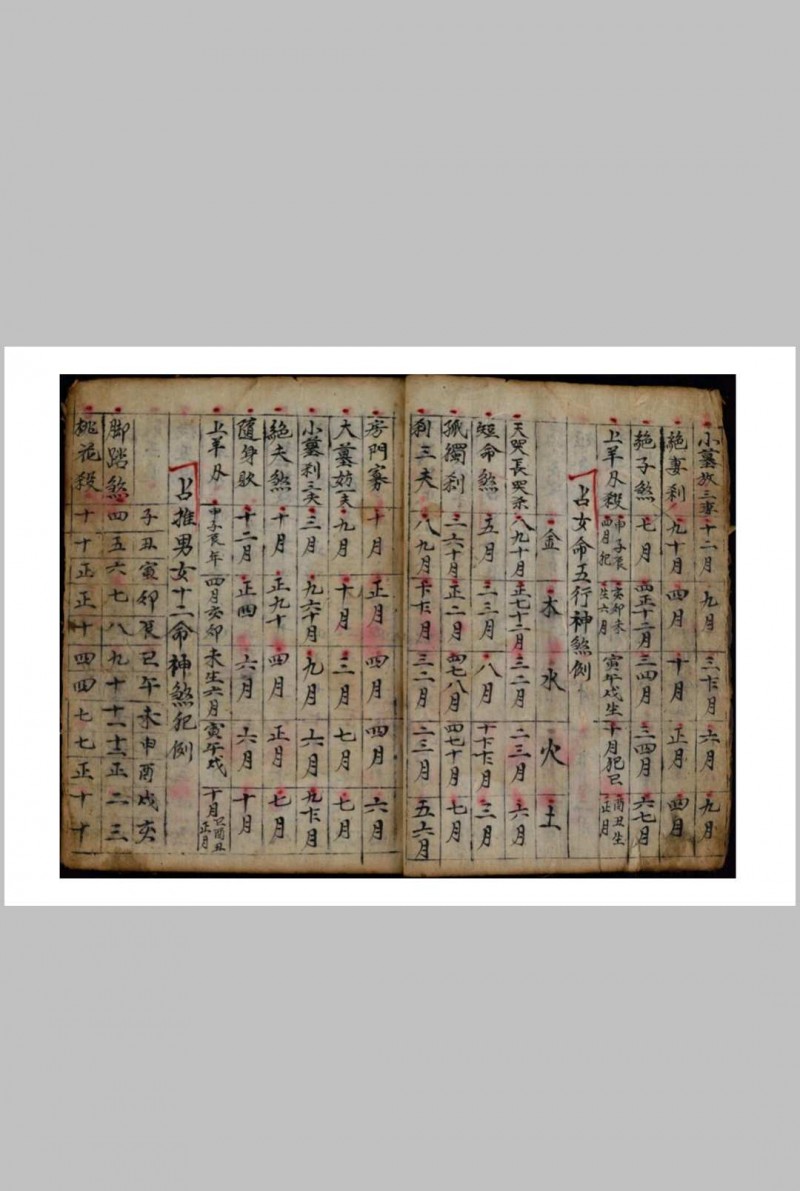 小墓妨三妻 十二月 九月 三七月 六月 九月
絶妻利 九十月 四月 十月 正月 四月
絶子煞 七月 正十二月 三四月 三四月 六七月
上羊刃殺 申子辰四月犯 亥卯未生六月 寅午戌生十月犯巳酉丑生正月
占女命五行神煞例
金 木 水 火 土
天哭長哭杀 八九十月 正七十二月 三二月 二三月 六月
短命煞 五月 二三月 八月 三月
孤獨利 三六十月 正二月 四七八月 四七十月 七月
利三夫 八九月 三二月 二三月 五六月
房門寡 十月 正月 四月 四月 六月
大墓妨夫 九月 十月 三月 七月 七月
小墓利三夫 三月 九六十月 九月 六月 九七月
絶夫煞 十月 正九十 四月 正月 七月
隨身耿 十二月 正四 六月 六月 十月
上羊刃 申子辰年四月亥卯未生六月寅午戌十月巳酉丑正月
占推男女十二命神煞犯例
子丑寅卯辰巳午未申酉戌亥
脚踏煞 四五六七八九十十一十二正二三
桃花殺 十十正正十四四七七正十十